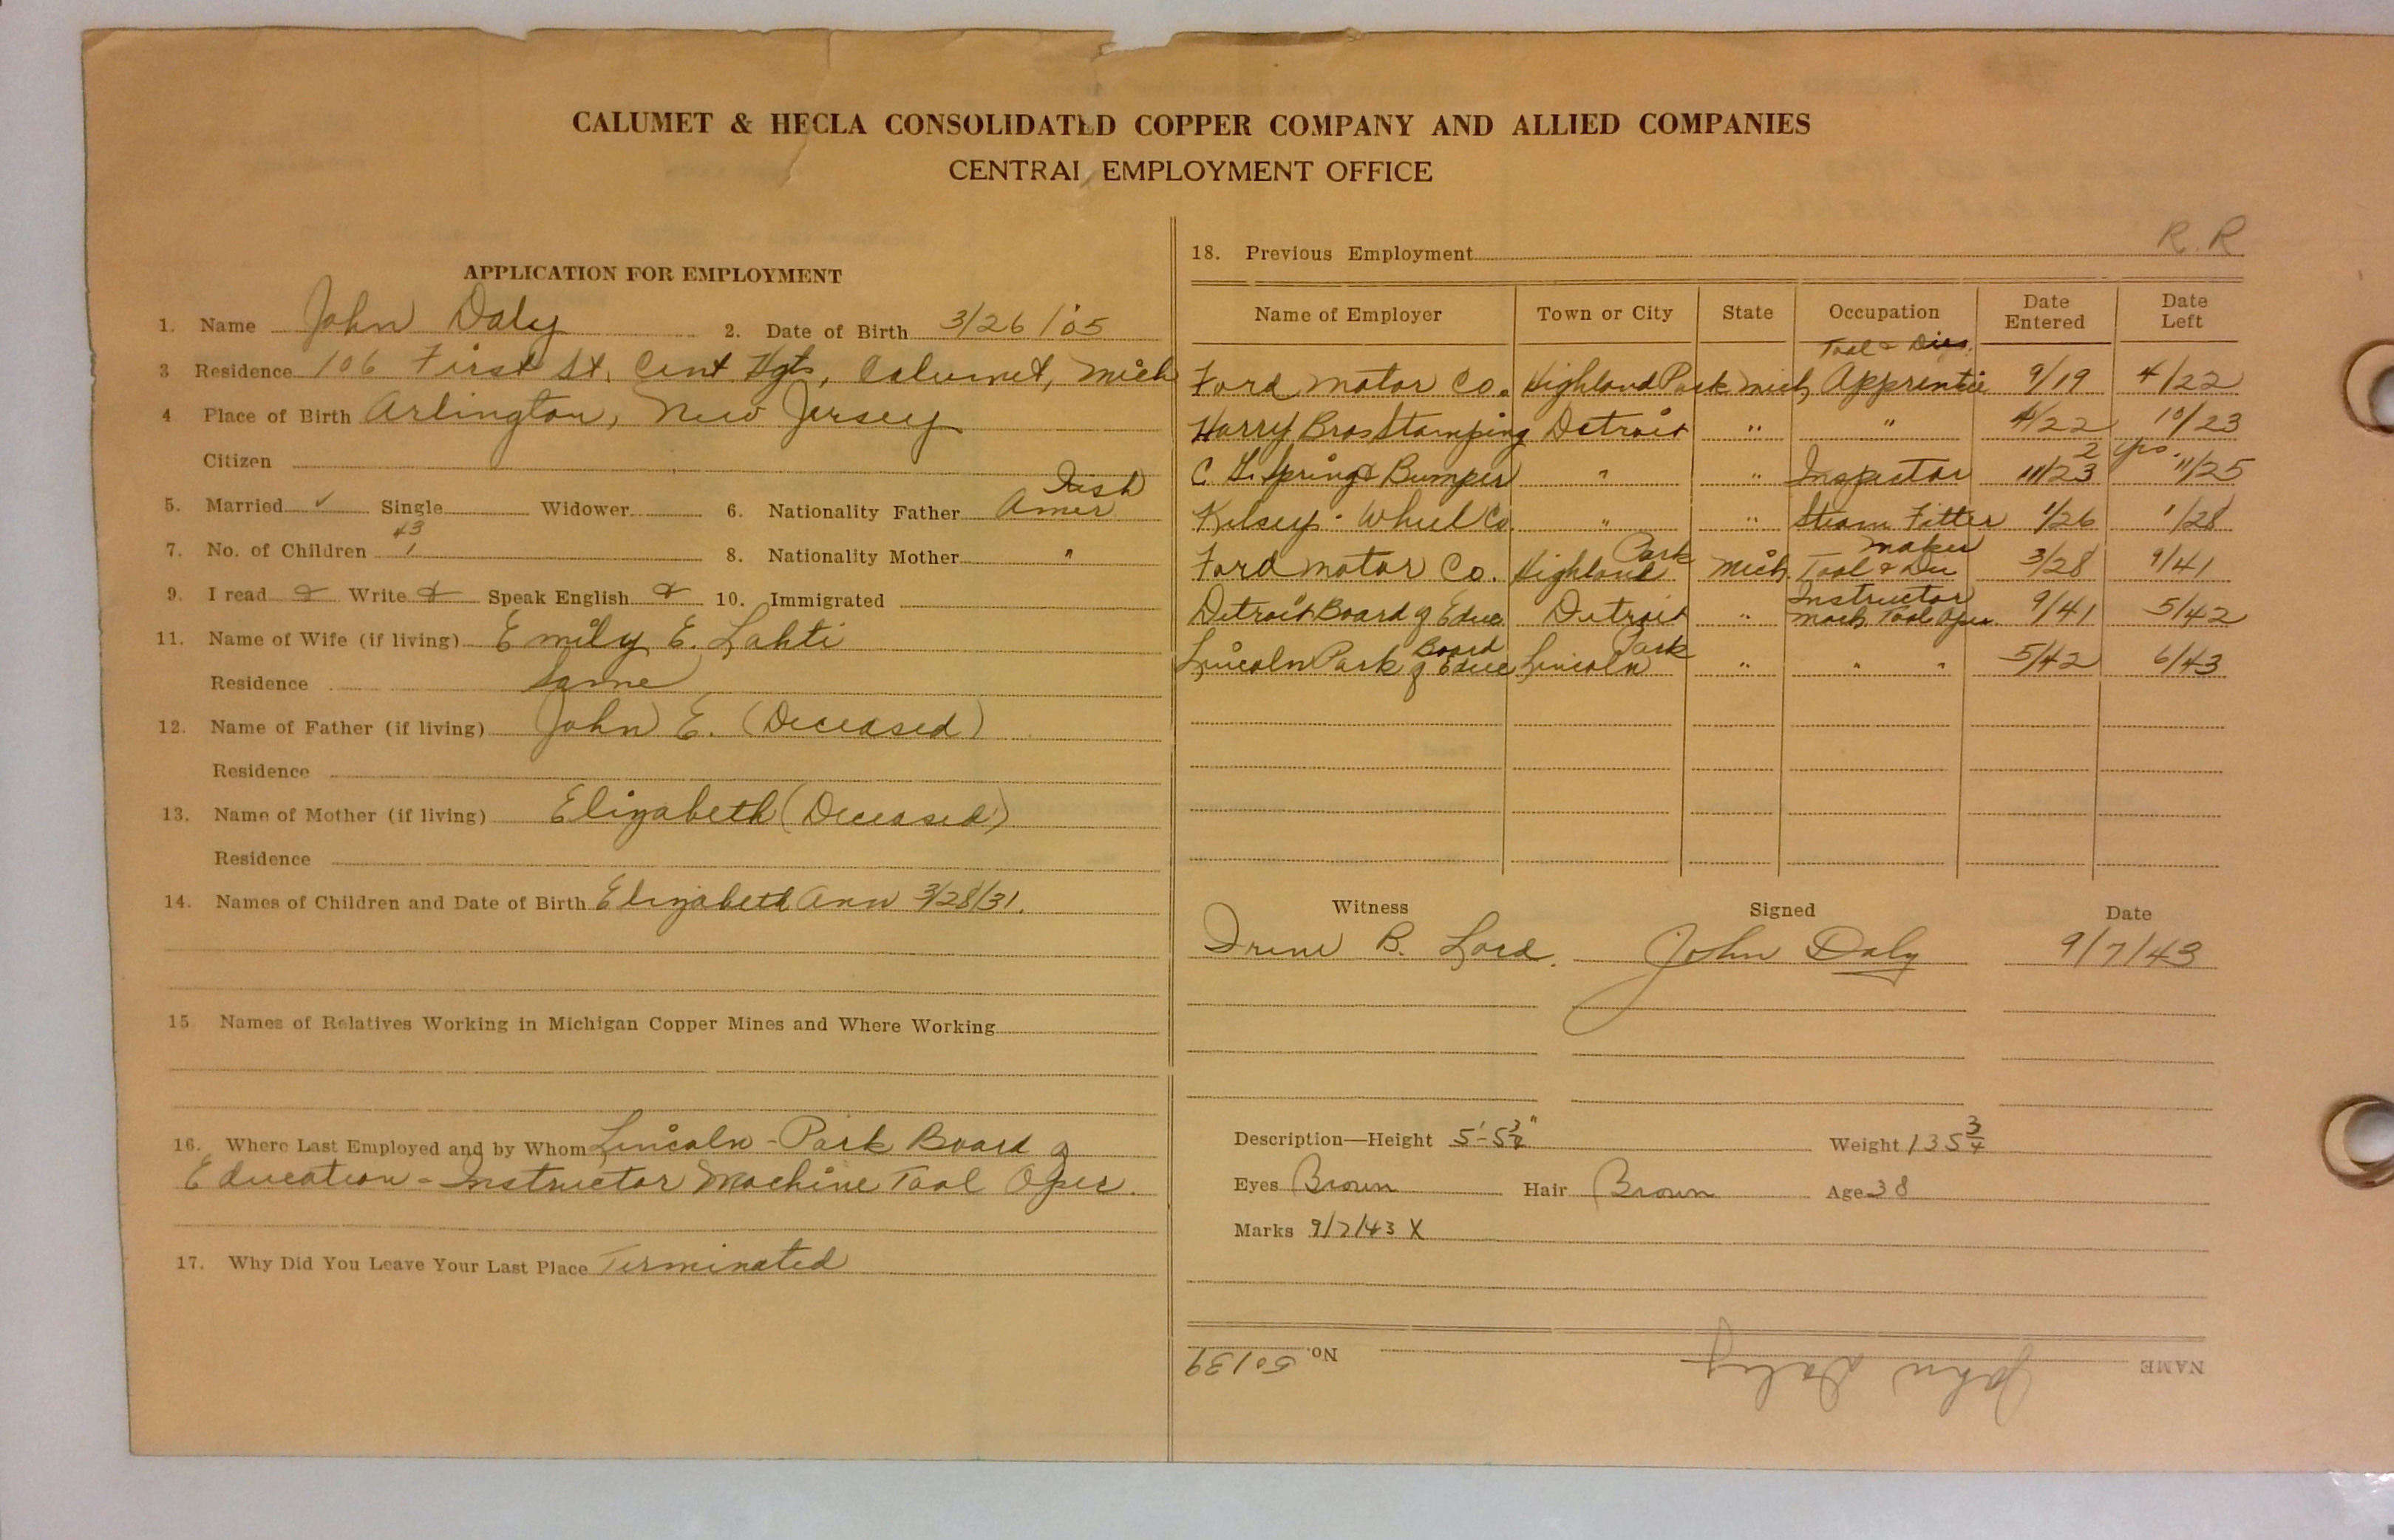 CALUMET & HECLA CONSOLIDATED COPPER COMPANY AND ALLIED COMPANIES
CENTRAL EMPLOYMENT OFFICE
APPLICATION FOR EMPLOYMENT
1. Name John Daly 2. Date of Birth 3/26/05
3 Residence 106 First St. Cent Hgts, Calumet, Mich
4 Place of Birth Arlington, New Jersey
Citizen
Irish
5. Married ✓ Single Widower 6. Nationality Father Amer
43
7. No. of Children 1 8. Nationality Mother "
9. I read & Write & Speak English & 10. Immigrated
11. Name of Wife (if living) Emily E. Lahti
Residence Same
12. Name of Father (if living) John E. (Deceased)
Residence
13. Name of Mother (if living) Elizabeth (Deceased)
Residence
14. Names of Children and Date of Birth Elizabeth Ann 3/28/31.
15 Names of Relatives Working in Michigan Copper Mines and Where Working
16. Where Last Employed and by Whom Lincoln - Park Board of
Education - Instructor Machine Tool Oper.
17. Why Did You Leave Your Last Place Terminated
18. Previous Employment R.R
Name of Employer Town or City State Occupation Date Entered Date Left
Tool & Dies
Ford Motor Co. Highland Park Mich, Apprentice 9/19 4/22
Harry Bros Stamping Detroit " " 4/22 10/23
2 yrs.
C. G. Spring & Bumper " " Inspector 11/23 11/25
Kelsey - Wheel Co. " " Steam Fitter 1/26 1/28
Park maker
Ford Motor Co. Highland Mich. Tool & Die 3/28 9/41
Instructor
Detroit Board of Educ. Detroit " Mach. Tool Oper 9/41 5/42
Board Park
Lincoln Park of Educ. Lincoln " " " 5/42 6/43
Witness Signed Date
Irene B. Lord. John Daly 9/7/43
Description—Height 5'-5 3/4" Weight 135 3/4
Eyes Brown Hair Brown Age 38
Marks 9/7/43 X
NAME John Daly No. 50139